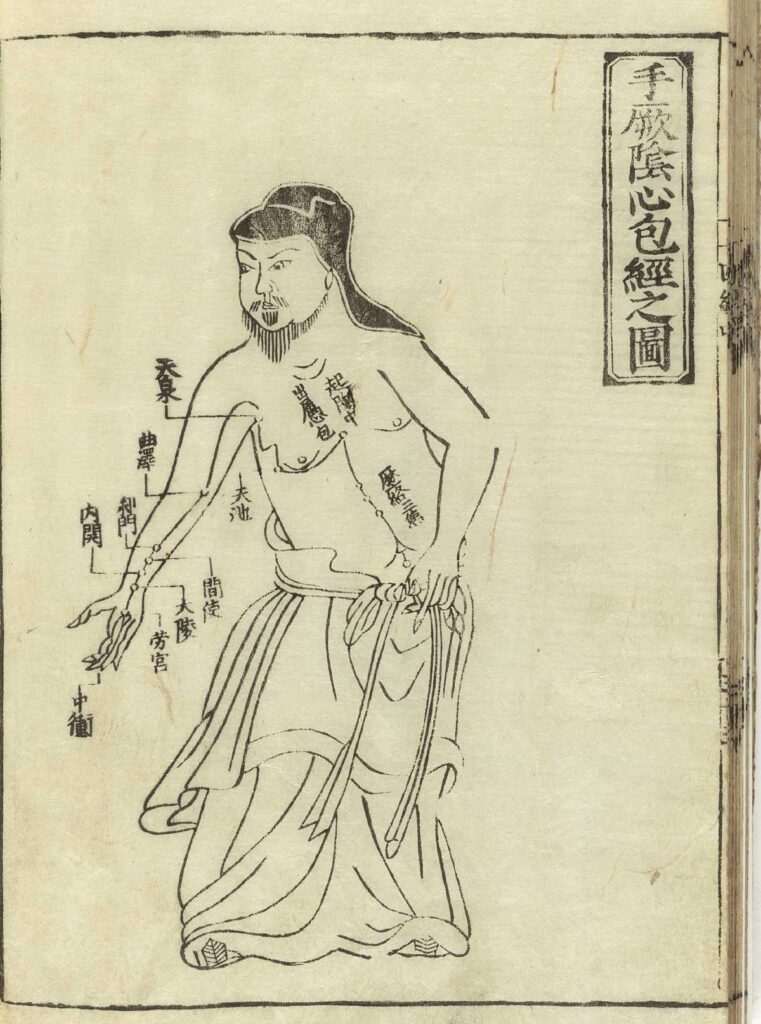 手厥陰心包經之圖
起胸中
出屬心包
歷絡三焦
天泉
曲澤
天池
郄門
内関
間使
大陵
劳宮
中衝